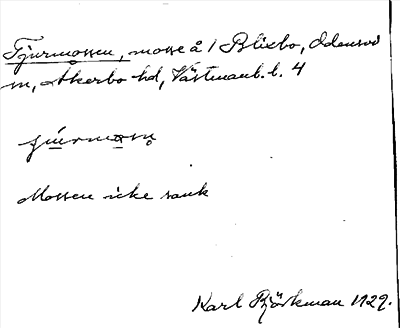 Tjurmossen, mosse å 1 Blixbo, Odensvi
sn, Åkerbo hd, Västmanl. l. 4
Mossen icke sank
Karl Björkman 1929.